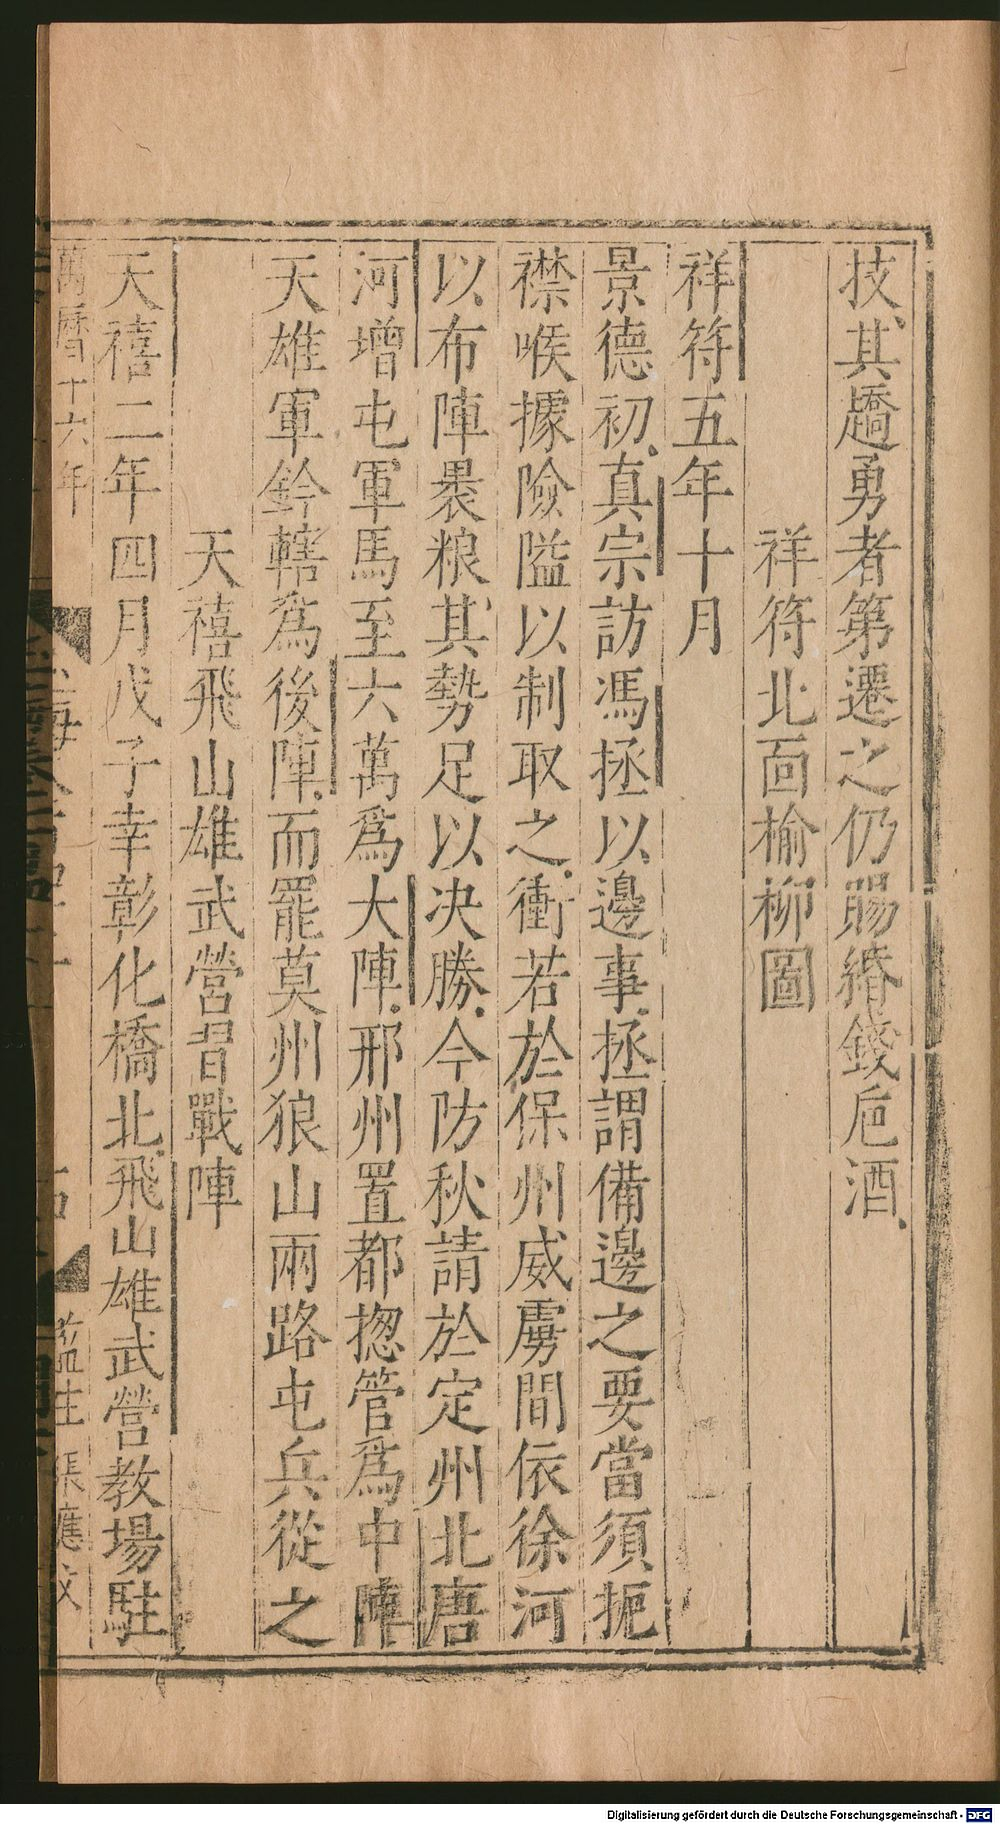 技其趫勇者第遷之仍賜緡錢巵酒
祥符北面榆柳圖
祥符五年十月
景德初真宗訪馮拯以邊事拯謂備邊之要當須扼
襟喉據險隘以制取之衝若於保州威虜間依徐河
以布陣暴粮其勢足以决勝今防秋請於定州北唐
河增屯軍馬至六萬爲大陣邢州置都揔管爲中陣
天雄軍鈐轄爲後陣而罷莫州狼山兩路屯兵從之
天禧飛山雄武營習戰陣
天禧二年四月戊子幸彰化橋北飛山雄武營教場駐
萬曆十六年
監生張應文
Digitalisierung gefördert durch die Deutsche Forschungsgemeinschaft - DFG